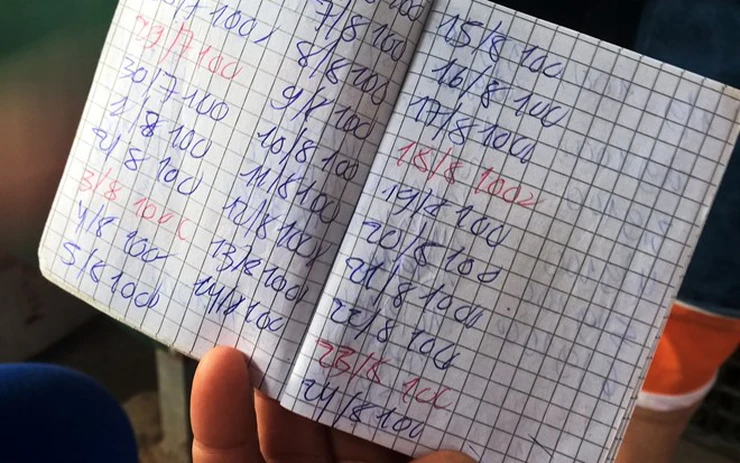 29/7 100
30/7 100
1/8 100
2/8 100
3/8 100
4/8 100
5/8 100
7/8 100
8/8 100
9/8 100
10/8 100
11/8 100
12/8 100
13/8 100
14/8 100
15/8 100
16/8 100
17/8 100
18/8 100
19/8 100
20/8 100
21/8 100
22/8 100
23/8 100
24/8 100